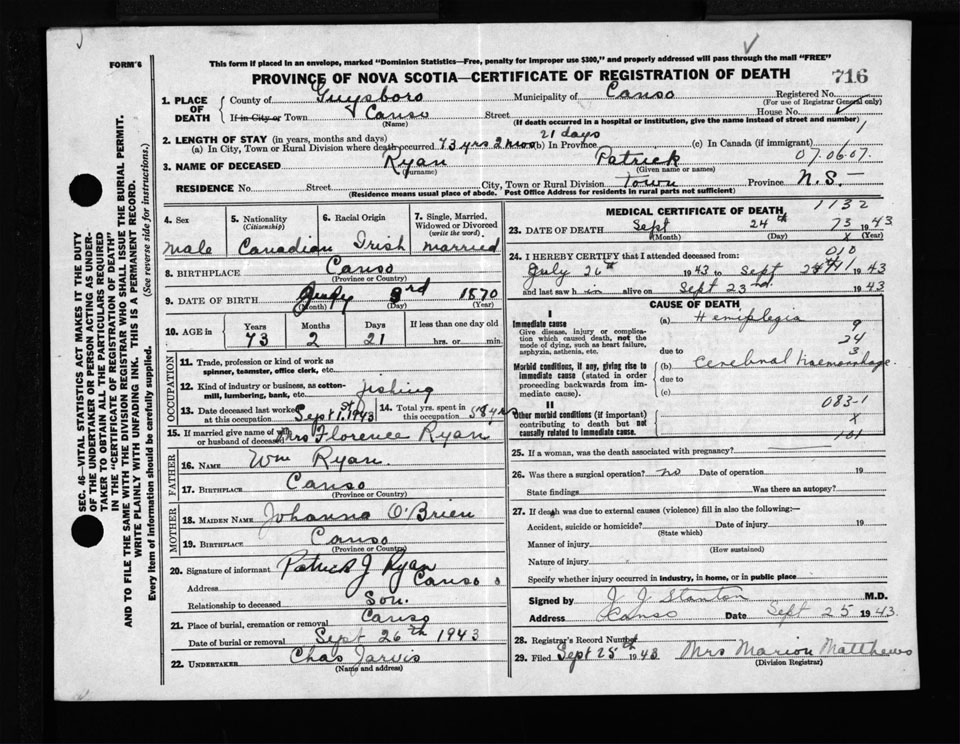 FORM 6
This form if placed in an envelope, marked "Dominion Statistics—Free, penalty for improper use $300," and properly addressed will pass through the mail "FREE"
PROVINCE OF NOVA SCOTIA—CERTIFICATE OF REGISTRATION OF DEATH
716
1. PLACE OF DEATH
County of Guysboro Municipality of Canso Registered No.
(For use of Registrar General only)
If in City or Town Canso Street House No.
(Name) (If death occurred in a hospital or institution, give the name instead of street and number)
2. LENGTH OF STAY (in years, months and days) 21 days
(a) In City, Town or Rural Division where death occurred 73 yrs 2 mos (b) In Province (c) In Canada (if immigrant)
3. NAME OF DECEASED Ryan Patrick 07.06.07.
(Surname) (Given name or names)
RESIDENCE No. Street City, Town or Rural Division Town Province N.S.
(Residence means usual place of abode. Post Office Address for residents in rural parts not sufficient)
4. Sex
male
5. Nationality (Citizenship)
Canadian
6. Racial Origin
Irish
7. Single, Married, Widowed or Divorced (write the word)
married
8. BIRTHPLACE Canso
(Province or Country)
9. DATE OF BIRTH 3rd 1870
(Month) (Day) (Year)
10. AGE in
Years Months Days If less than one day old
73 2 21 hrs. or min.
OCCUPATION
11. Trade, profession or kind of work as spinner, teamster, office clerk, etc.
12. Kind of industry or business, as cotton-mill, lumbering, bank, etc. fishing
13. Date deceased last worked at this occupation Sept 1st, 1943
14. Total yrs. spent in this occupation 58 yrs
15. If married give name of wife or husband of deceased Mrs Florence Ryan
FATHER
16. NAME Wm Ryan.
17. BIRTHPLACE Canso
(Province or Country)
MOTHER
18. MAIDEN NAME Johanna O'Brien
19. BIRTHPLACE Canso
(Province or Country)
20. Signature of informant Patrick J Ryan
Address Canso
Relationship to deceased Son.
21. Place of burial, cremation or removal Canso
Date of burial or removal Sept 26th 1943
22. UNDERTAKER Chas Jarvis
(Name and address)
MEDICAL CERTIFICATE OF DEATH 1132
23. DATE OF DEATH Sept 24th 73 1943
(Month) (Day) X (Year)
24. I HEREBY CERTIFY that I attended deceased from: 010
July 26th 1943 to Sept 24 1943
and last saw h im alive on Sept 23rd. 1943
CAUSE OF DEATH
I
Immediate cause
Give disease, injury or complication which caused death, not the mode of dying, such as heart failure, asphyxia, asthenia, etc.
(a) Hemiplegia
9
24
3
due to
Morbid conditions, if any, giving rise to immediate cause (stated in order proceeding backwards from immediate cause)
(b) Cerebral Haemorrhage.
due to
(c)
II
Other morbid conditions (if important) contributing to death but not causally related to immediate cause.
083-1
X
101
25. If a woman, was the death associated with pregnancy?
26. Was there a surgical operation? no Date of operation 19
State findings Was there an autopsy?
27. If death was due to external causes (violence) fill in also the following:—
Accident, suicide or homicide? Date of injury 19
(State which)
Manner of injury
(How sustained)
Nature of injury
Specify whether injury occurred in industry, in home, or in public place
Signed by J J Stanton M.D.
Address Canso Date Sept 25 1943.
28. Registrar's Record Number
29. Filed Sept 25th 1943 Mrs Marion Matthews
(Division Registrar)
SEC. 46—VITAL STATISTICS ACT MAKES IT THE DUTY
OF THE UNDERTAKER OR PERSON ACTING AS UNDER-
TAKER TO OBTAIN ALL THE PARTICULARS REQUIRED
IN THE "CERTIFICATE OF REGISTRATION OF DEATH"
AND TO FILE THE SAME WITH THE DIVISION REGISTRAR WHO SHALL ISSUE THE BURIAL PERMIT.
WRITE PLAINLY WITH UNFADING INK. THIS IS A PERMANENT RECORD.
Every item of information should be carefully supplied. (See reverse side for instructions.)